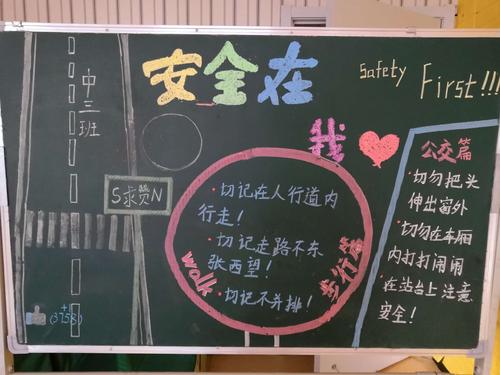 安全在
Safety
First!!!
中三班
我
公交篇
·切勿把头
伸出窗外
·切勿在车厢
内打打闹闹
·在站台上注意
安全!
S求赞N
·切记在人行道内
行走!
·切记走路不东
张西望!
·切记不并排!
walk
步行篇
+
(3758)